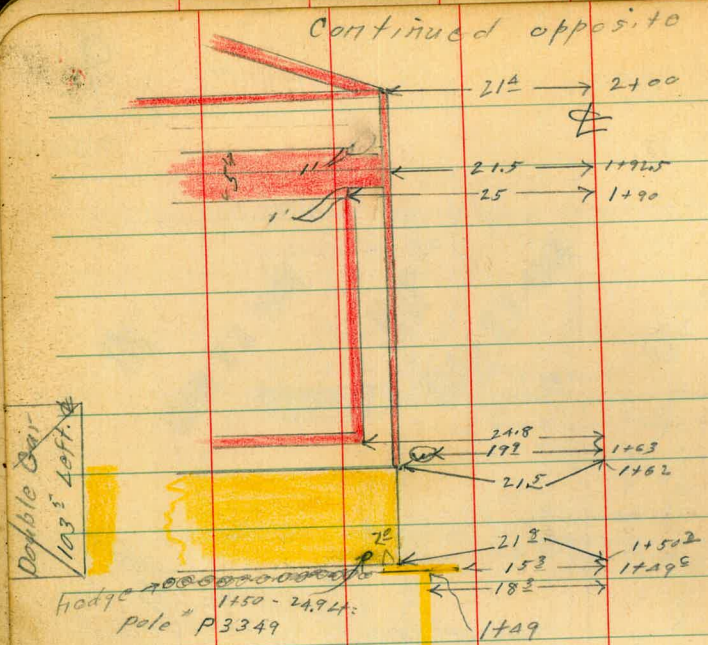 Continued opposite
21⁴ 2+00
℄
1' 21.5 1+92.5
25 1+90
1'
24.8
1+63
1+62
21.5
Double Gar
103⁵ Left.
1+50²
15³ 1+49⁶
18³
Hedge
1+50 - 24.9 Lt.
Pole # P3349
1+49